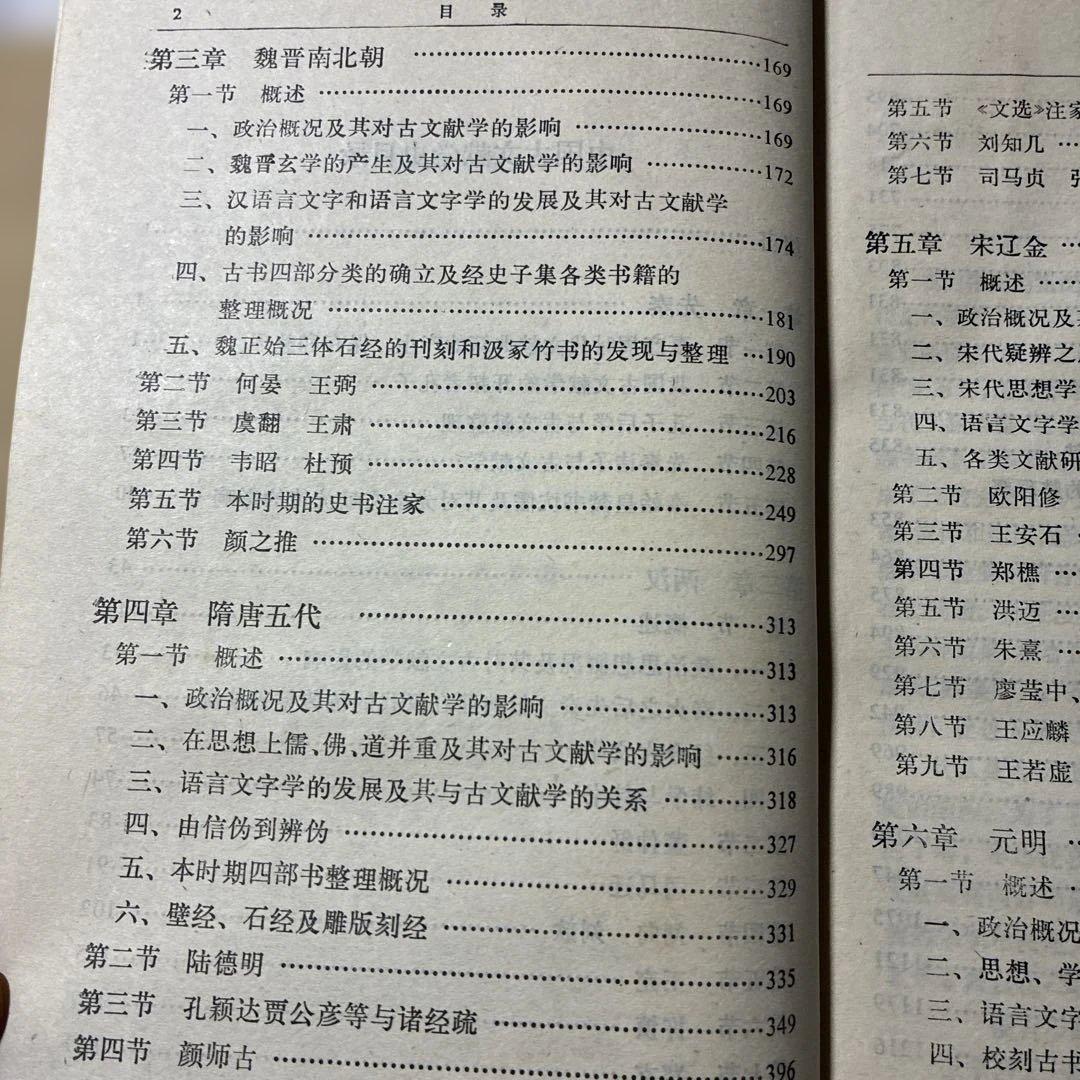 2 目录
第三章 魏晋南北朝 ……………………………169
第一节 概述 ……………………………………169
一、政治概况及其对古文献学的影响 ……………169
二、魏晋玄学的产生及其对古文献学的影响 ………172
三、汉语言文字和语言文字学的发展及其对古文献学
的影响 ……………………………………174
四、古书四部分类的确立及经史子集各类书籍的
整理概况 …………………………………181
五、魏正始三体石经的刊刻和汲冢竹书的发现与整理 …190
第二节 何晏 王弼 ………………………………203
第三节 虞翻 王肃 ………………………………216
第四节 韦昭 杜预 ………………………………228
第五节 本时期的史书注家 ………………………249
第六节 颜之推 ……………………………………297
第四章 隋唐五代 ………………………………313
第一节 概述 ……………………………………313
一、政治概况及其对古文献学的影响 ……………313
二、在思想上儒、佛、道并重及其对古文献学的影响 ……316
三、语言文字学的发展及其与古文献学的关系 ………318
四、由信伪到辨伪 ………………………………327
五、本时期四部书整理概况 ………………………329
六、壁经、石经及雕版刻经 ………………………331
第二节 陆德明 ……………………………………335
第三节 孔颖达贾公彦等与诸经疏 …………………349
第四节 颜师古 ……………………………………396
第五节 《文选》注家
第六节 刘知几 …
第七节 司马贞
第五章 宋辽金 …
第一节 概述 ……
一、政治概况及
二、宋代疑辨之
三、宋代思想学
四、语言文字学
五、各类文献研
第二节 欧阳修
第三节 王安石
第四节 郑樵 …
第五节 洪迈 …
第六节 朱熹 …
第七节 廖莹中、
第八节 王应麟
第九节 王若虚
第六章 元明 …
第一节 概述
一、政治概况
二、思想、学
三、语言文字
四、校刻古书